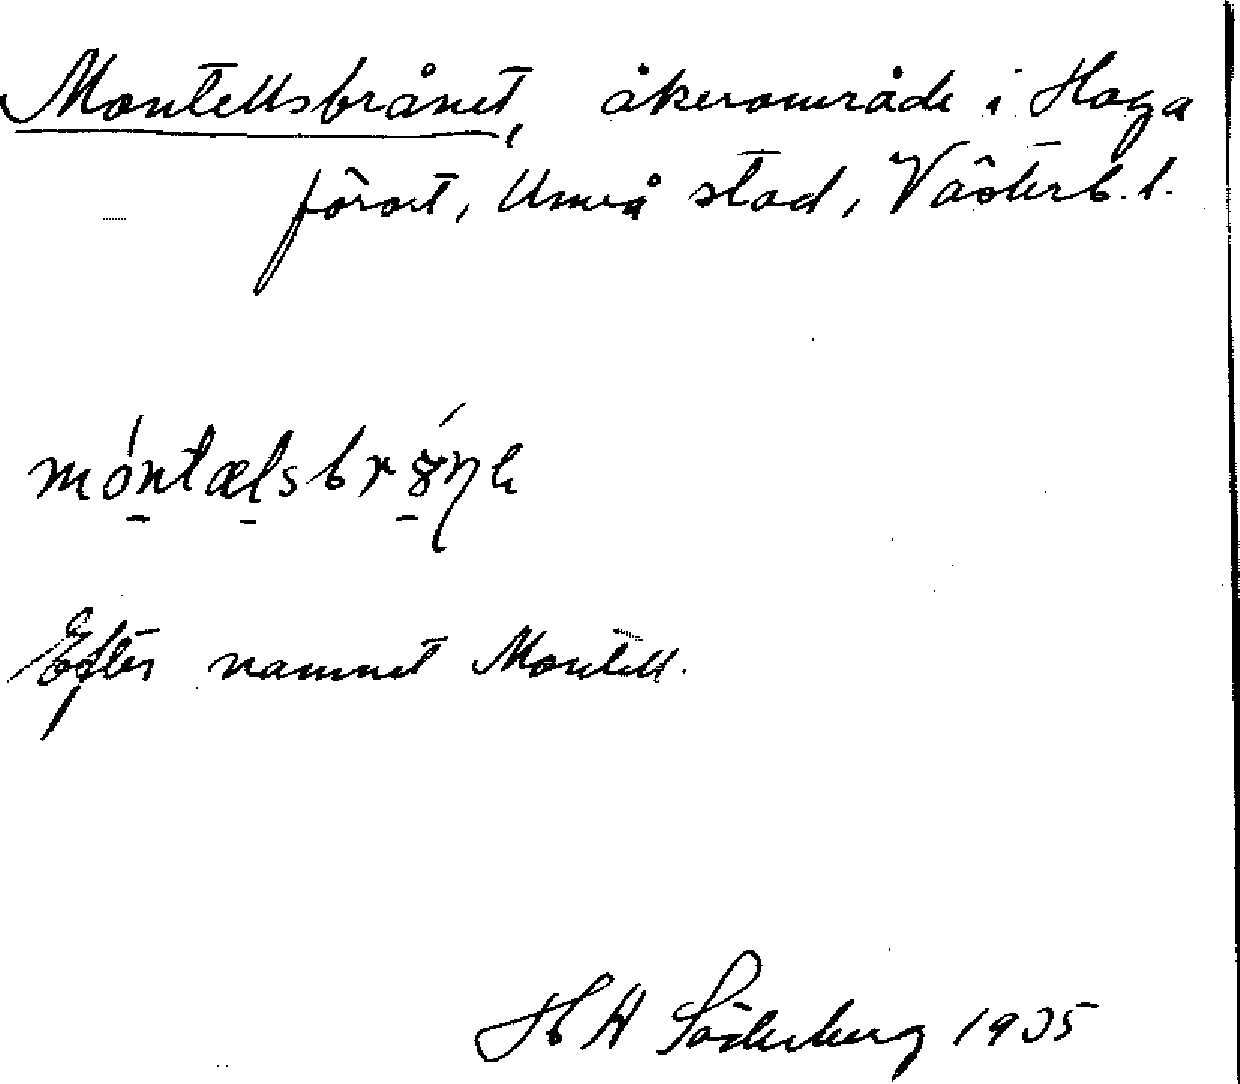 Montellsbrånet, åkerområde i Haga
förort, Umeå stad, Västerb. l.
Efter namnet Montell.
H Söderberg 1935